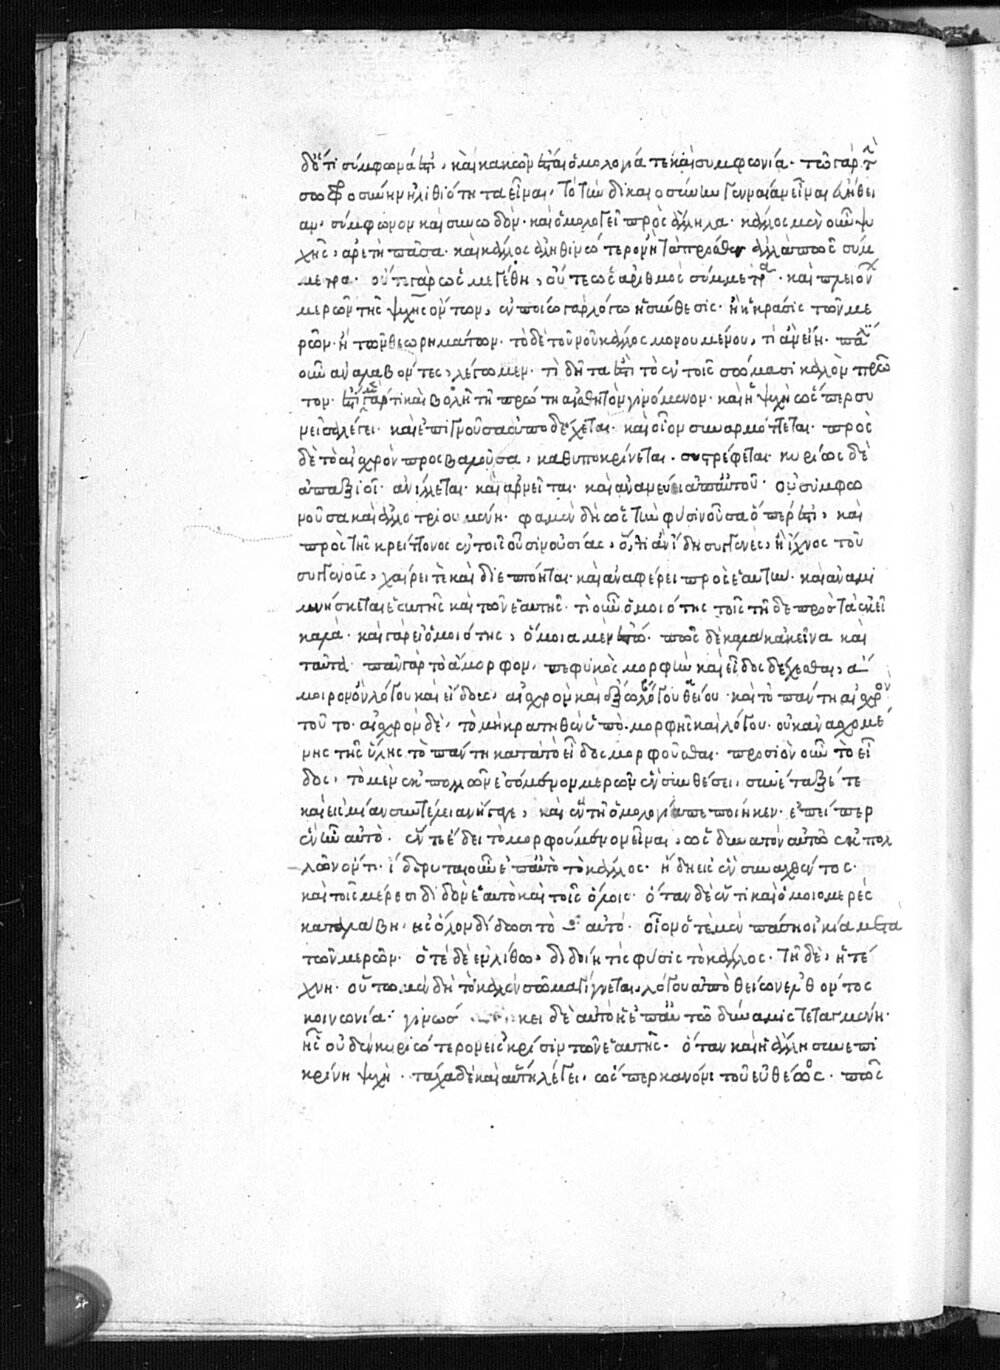 δ' ὅτι σύμφωνά ἐστι, καὶ κακῶν ἔσται ὁμολογία τε καὶ συμφωνία· τῶ γὰρ τὴν
σωφροσύνην ἠλιθιότητα εἶναι, τὸ τὴν δικαιοσύνην γενναίαν εἶναι εὐήθει
αν, σύμφωνον καὶ συνωδὸν· καὶ ὁμολογεῖ πρὸς ἄλληλα· κάλλος μὲν οὖν ψυ
χῆς, ἀρετὴ πᾶσα· καὶ κάλλος ἀληθινώτερον ἢ τὰ πρόσθεν ἀλλὰ πῶς σύμ
μετρα· οὔτε γὰρ ὡς μεγέθη, οὔτε ὡς ἀριθμὸς σύμμετρα· καὶ πλειόνων
μερῶν τῆς ψυχῆς ὄντων, ἐν ποίω γὰρ λόγω ἡ σύνθεσις· ἢ ἡ κράσις τῶν με
ρῶν· ἢ τῶν θεωρημάτων· τὸ δὲ τοῦ νοῦ κάλλος μονουμένου, τί ἂν εἴη· πάλιν
οὖν ἀναλαβόντες, λέγωμεν· τί δῆτα ἐστὶ τὸ ἐν τοῖς σώμασι καλὸν πρῶ
τον· ἐστὶ μὲν γάρ τι καὶ βολῆ τῆ πρώτη αἰσθητὸν γινόμενον· καὶ ἡ ψυχὴ ὥσπερ συ
νεῖσα λέγει· καὶ ἐπιγνοῦσα ἀποδέχεται· καὶ οἷον συναρμόττεται· πρὸς
δὲ τὸ αἰσχρὸν προσβαλοῦσα, καθυποκρίνεται· συστρέφεται· κυρίως δὲ
ἀπαξιοῖ· ἀνίλλεται· καὶ ἀρνεῖται· καὶ ἀνανεύει ἀπ' αὐτοῦ· οὐ συμφω
νοῦσα καὶ ἀλλοτριουμένη· φαμὲν δὴ ὡς τὴν φύσιν οὖσα ὅπερ ἐστὶ, καὶ
πρὸς τῆς κρείττονος ἐν τοῖς οὖσιν οὐσίας, ὅ, τι ἂν ἴδη συγγενὲς, ἢ ἴχνος τοῦ
συγγενοῦς, χαίρει τὲ καὶ διεπτόηται· καὶ ἀναφέρει πρὸς ἑαυτὴν· καὶ ἀναμι
μνήσκεται ἑαυτῆς καὶ τῶν ἑαυτῆς· τί οὖν ὁμοιότης τοῖς τῆδε πρὸς τὰ ἐκεῖ
καλά· καὶ γὰρ εἰ ὁμοιότης, ὅμοια μὲν ἔστω· πῶς δὲ καλὰ κἀκεῖνα καὶ
ταῦτα· πᾶν γὰρ τὸ ἄμορφον, πεφυκὸς μορφὴν καὶ εἶδος δέχεσθαι, ἄ
μοιρον ὂν λόγου καὶ εἴδους, αἰσχρὸν καὶ ἔξω λόγου θείου· καὶ τὸ πάντη αἰσχρὸν
τοῦτο· αἰσχρὸν δὲ, τὸ μὴ κρατηθὲν ὑπὸ μορφῆς καὶ λόγου· οὐκ ἀνασχομέ
νης τῆς ὕλης τὸ πάντη κατὰ τὸ εἶδος μορφοῦσθαι· προσιὸν οὖν τὸ εἶ
δος, τὸ μὲν ἐκ πολλῶν ἐσόμενον μερῶν ἓν συνθέσει, συνέταξέ τε
καὶ εἰς μίαν συντέλειαν ἤγαγε, καὶ ἓν τῆ ὁμολογία πεποίηκεν· ἐπείπερ
ἓν ἦν αὐτὸ· ἕν τε ἔδει τὸ μορφούμενον εἶναι, ὡς δυνατὸν αὐτῶ ἐκ πολ
λῶν ὄντι· ἵδρυται οὖν ἐπ' αὐτὸ τὸ κάλλος· ἤδη εἰς ἓν συναχθέντος·
καὶ τοῖς μέρεσι διδὸν ἑαυτὸ καὶ τοῖς ὅλοις· ὅταν δὲ ἕν τι καὶ ὁμοιομερὲς
καταλάβη, εἰς ὅλον δίδωσι τὸ αὐτό· οἷον ὁτὲ μὲν πάση οἰκία μετὰ
τῶν μερῶν· ὁτὲ δὲ ἑνὶ λίθω, διδοίη τὶς φύσις τὸ κάλλος· τῆ δὲ, ἡ τέ
χνη· οὕτω μὲν δὴ τὸ καλὸν σῶμα γίγνεται, λόγου ἀπὸ θείων ἐλθόντος
κοινωνία· γινώσκει δὲ αὐτὸ ἡ ἐπ' αὐτῶ δύναμις τεταγμένη·
ἧς οὐδὲν κυριώτερον εἰς κρίσιν τῶν ἑαυτῆς· ὅταν καὶ ἡ ἄλλη συνεπι
κρίνη ψυχὴ· τάχα δὲ καὶ αὕτη λέγει, ὥσπερ κανόνι τοῦ εὐθέος· πῶς